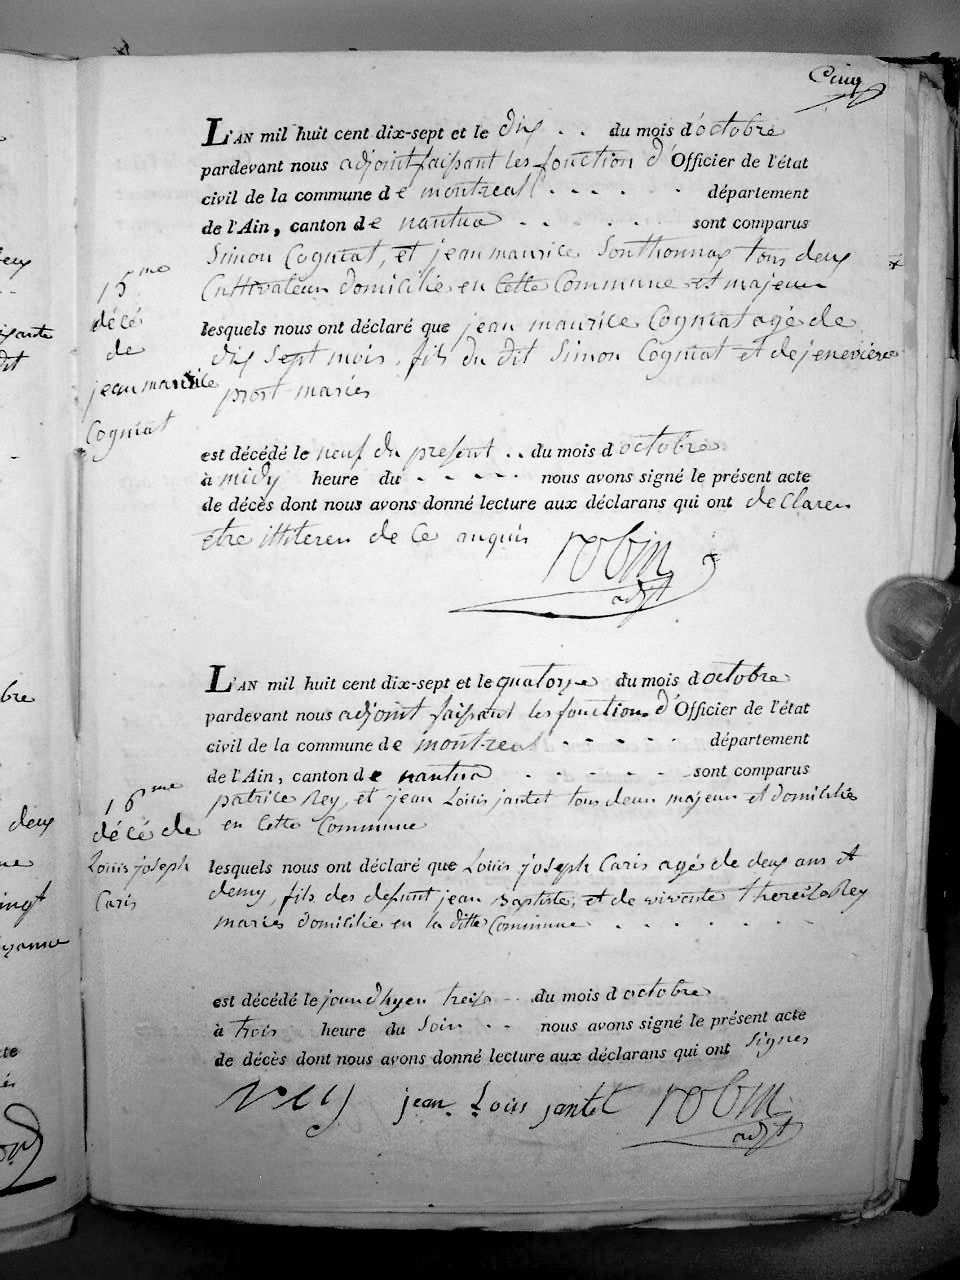 Cinq
L'AN mil huit cent dix-sept et le dix . . du mois d'octobre
pardevant nous adjoint faisant les fonction d'Officier de l'état
civil de la commune de montreal - - - - - département
de l'Ain, canton de nantua - - - - - sont comparus
Simon Cogniat, et jean maurice Sonthonnax tous deux
Cultivateurs domicilié en Cette Commune et majeur
lesquels nous ont déclaré que jean maurice Cogniat agé de
dix sept mois, fils du dit Simon Cogniat et de jenevieve
prost mariés
15me
décé
de
jean maurice
Cogniat
est décédé le neuf du present .. du mois d'octobre
à midy heure du - - - - - nous avons signé le présent acte
de décès dont nous avons donné lecture aux déclarans qui ont declaren
etre illiteren de Ce anquis
robin
adjt
L'AN mil huit cent dix-sept et le quatorze du mois d octobre
pardevant nous adjoint faisant les fonctions d'Officier de l'état
civil de la commune de montreal - - - - - département
de l'Ain, canton de nantua - - - - - sont comparus
patrice Rey, et jean Louis jantet tous deux majeur et domicilié
en Cette Commune
16me
décé de
Louis joseph
Caris
lesquels nous ont déclaré que Louis joseph Caris agé de deux ans et
demy, fils des defunt jean Baptiste, et de vivente thereize Rey
mariés domicilié en la ditte Commune - - - - -
est décédé le jourd'hyer treize - - du mois d octobre
à trois heure du Soir - - nous avons signé le présent acte
de décès dont nous avons donné lecture aux déclarans qui ont signés
rey jean Louis jantet robin
adjt